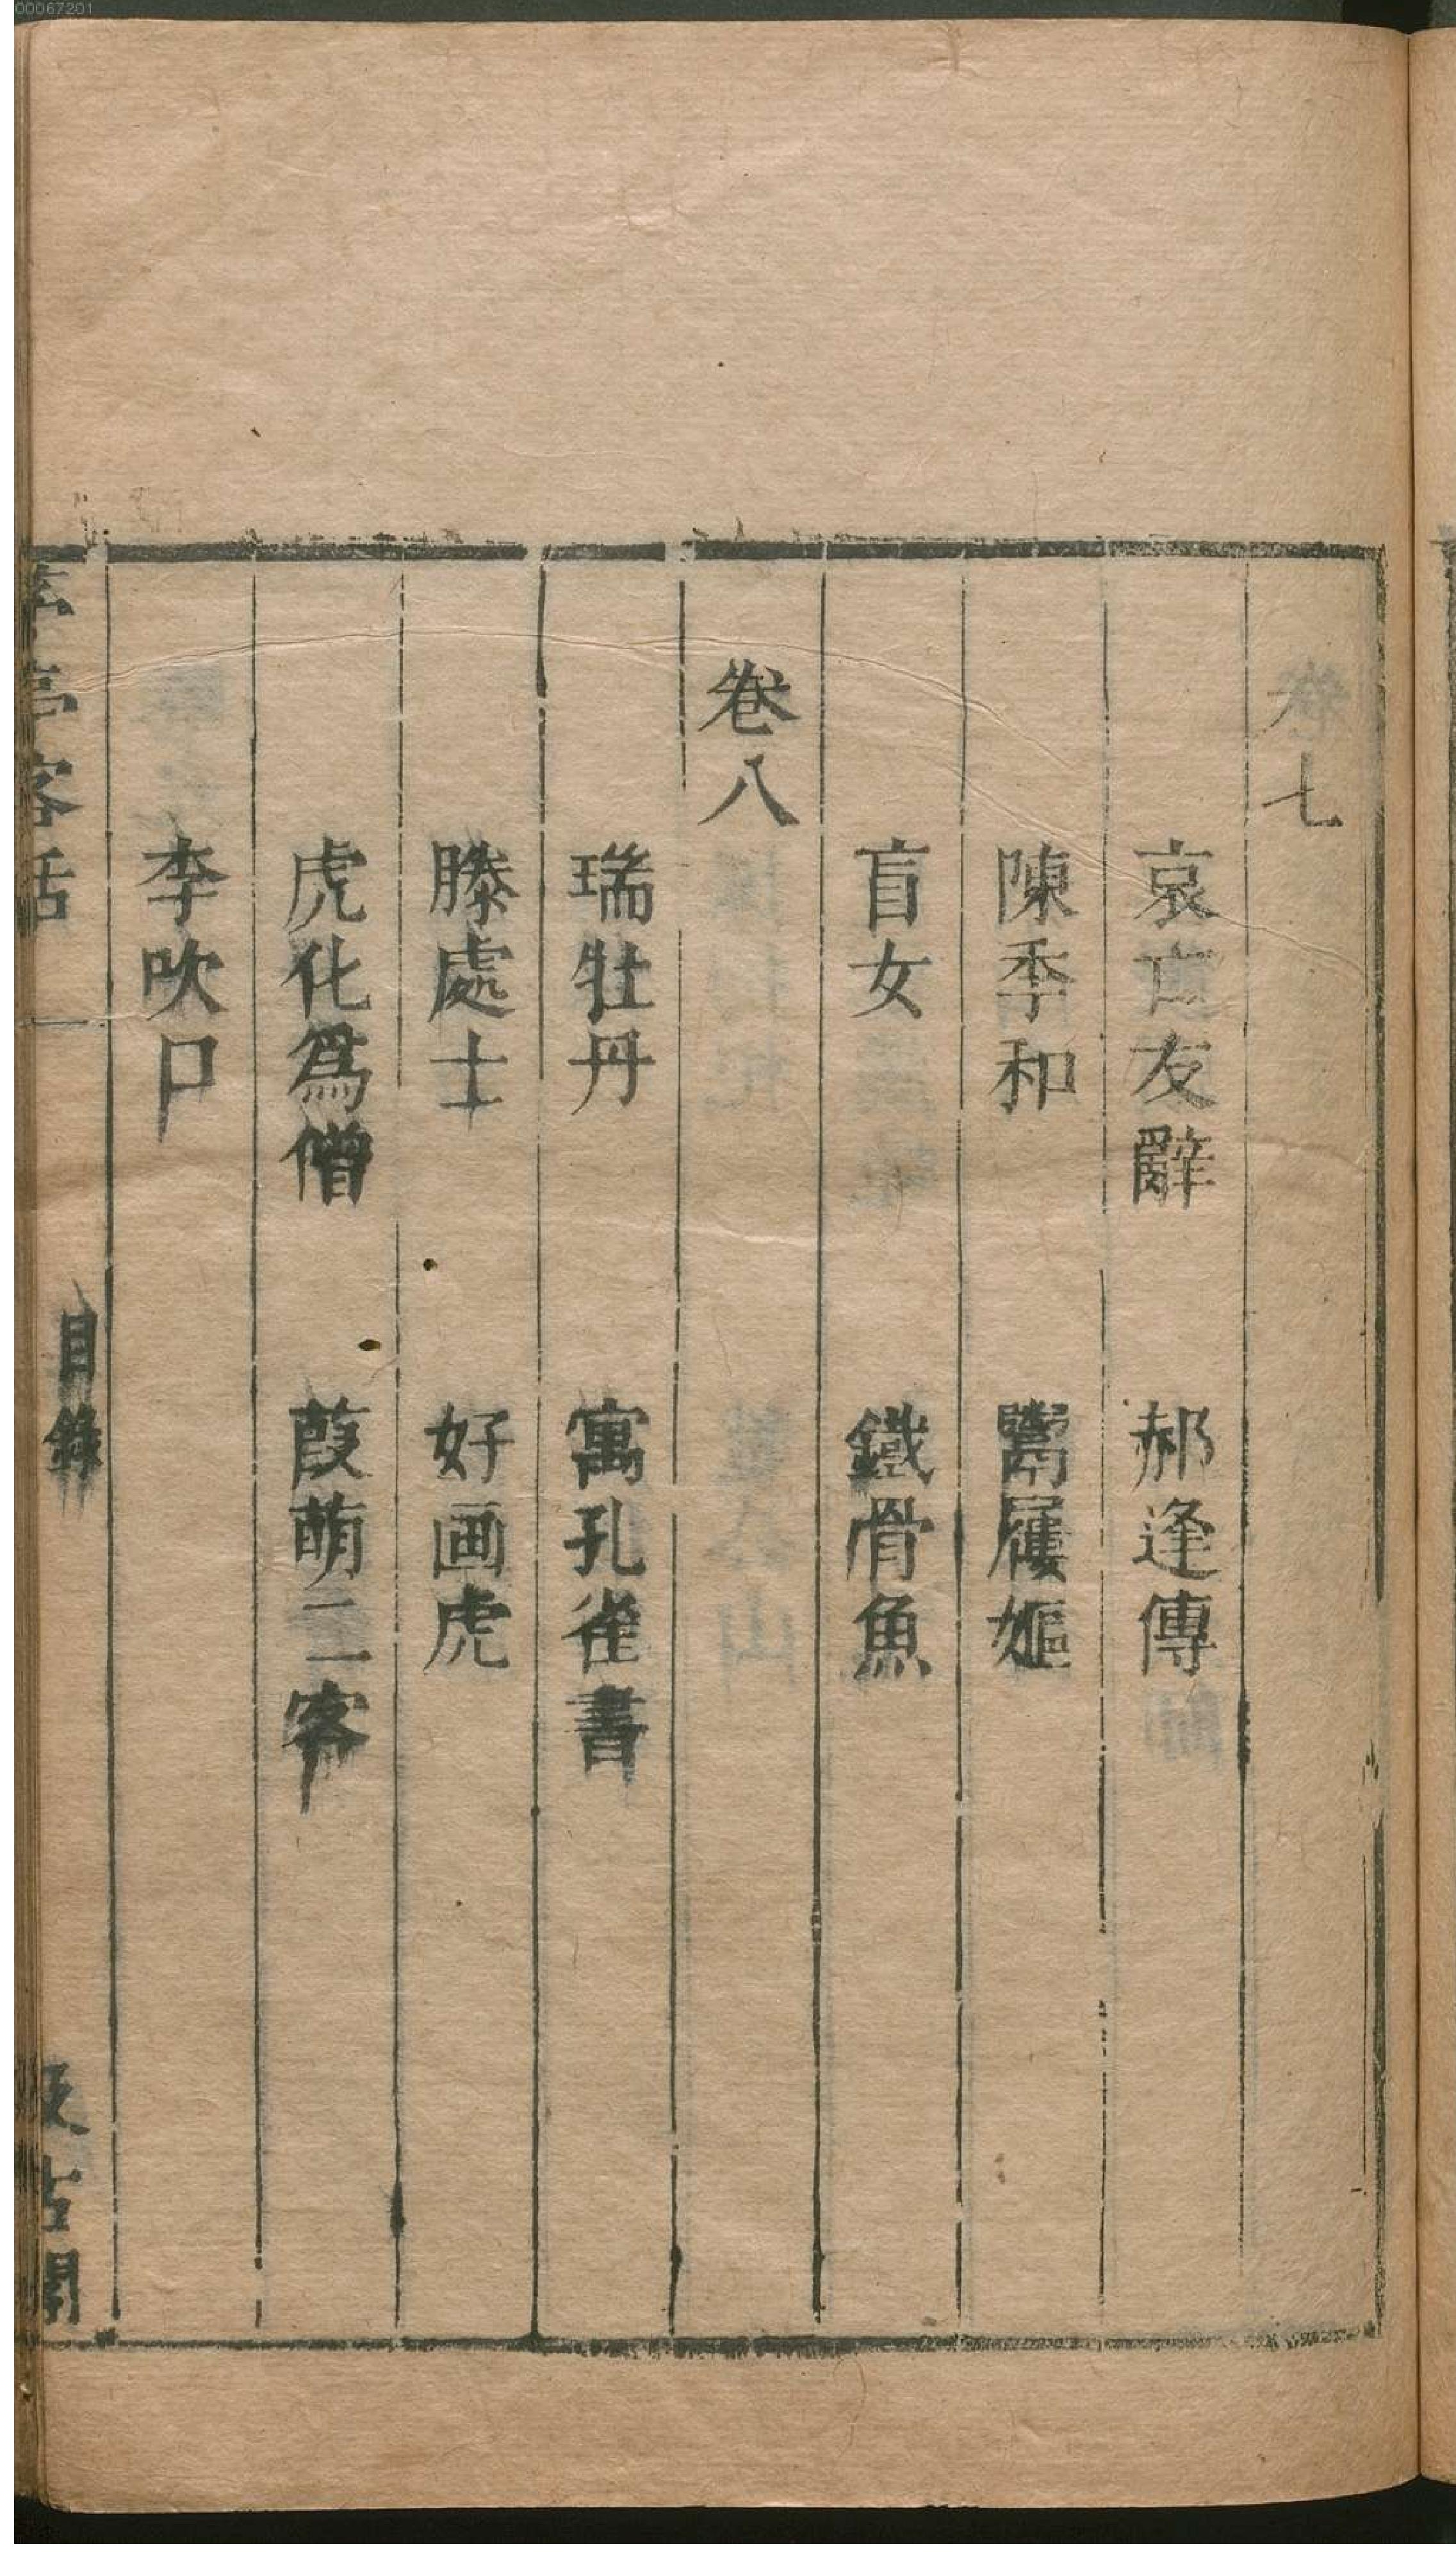 00067201
卷七
哀亡友辭　郝逢傳
陳季和　鬻屨嫗
盲女　鐵骨魚
卷八
瑞牡丹　寓孔雀書
滕處士　好画虎
虎化爲僧　葭萌二客
李吹口
亭客話　目錄　古閣